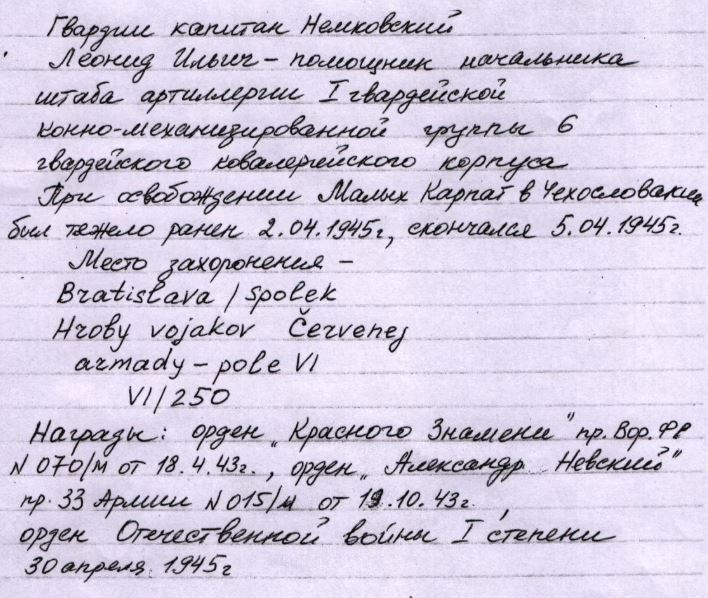 Гвардии капитан Немковский
Леонид Ильич – помощник начальника
штаба артиллерии I гвардейской
конно-механизированной группы 6
гвардейского ковалерейского корпуса
При освобождении Малых Карпат в Чехословакии
был тяжело ранен 2.04.1945г, скончался 5.04.1945г.
Место захоронения –
Bratislava / Spolek
Hroby vojakov Červenej
armady – pole VI
VI/250
Награды: орден „Красного Знамени" пр. Вор. Фр
N 070/м от 18.4.43г., орден „Александр Невский"
пр. 33 Армии N 015/м от 19.10.43г.,
орден Отечественной войны I степени
30 апреля 1945г